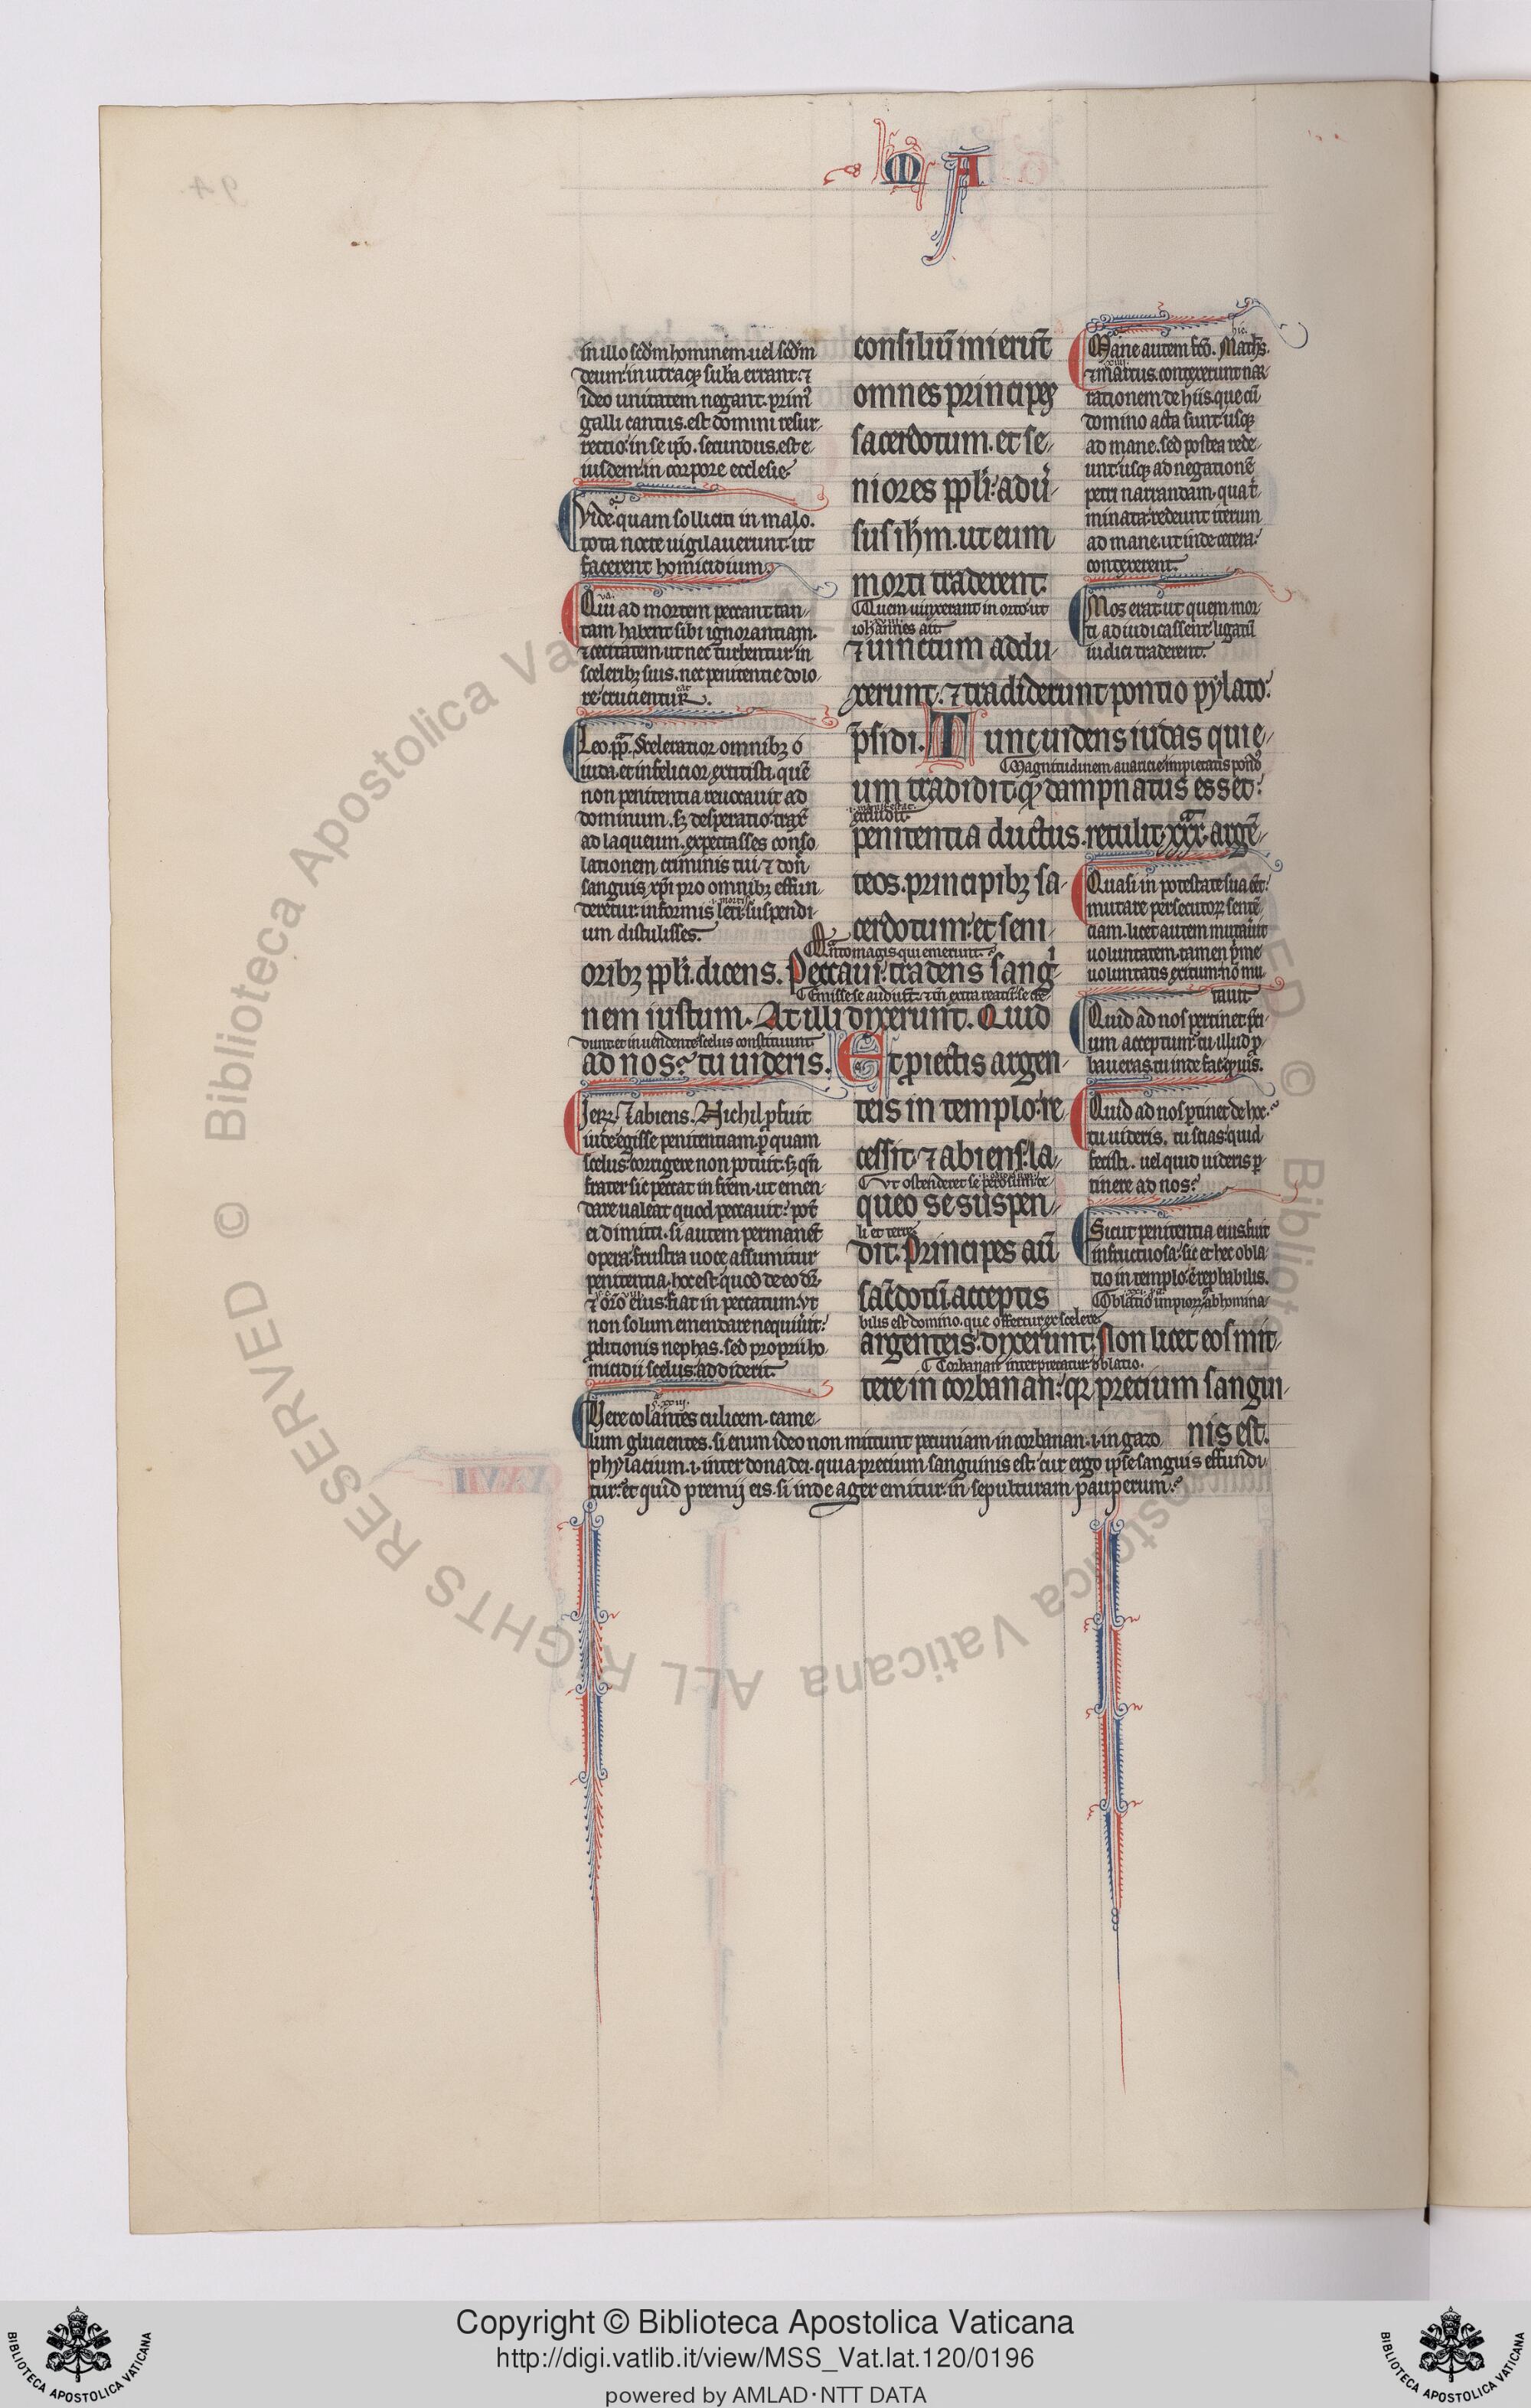 M A
in illo scd̄m hominem. uel scd̄m
deum: in utraq; sub̄a errant: ⁊
ideo unitatem negant. primꝰ
galli cantus. est domini resur-
rectio in se ip̄o. secundus. est e-
iusdem: in corpore ecclesie.
Vide quam solliciti in malo.
tota nocte uigilauerunt: ut
facerent homicidium.
Qui ad mortem peccant tan-
tam habent sibi ignorantiam.
⁊ cecitatem. ut nec turbentur in
sceleribꝫ suis. nec penitentie dolo-
re crucientur.
Leo. pp̄. Sceleratior omnibꝫ o
iuda. et infelicior extitisti. quē
non penitentia reuocauit ad
dominum. sꝫ desperatio trax̄
ad laqueum. expectasses conso
lationem criminis tui ⁊ don̄
sanguis xp̄i pro omnibꝫ effun-
i. mortis
deretur: informis leti suspendi-
um distulisses.
consiliū inierūt
omnes principes
sacerdotum. et se-
niores pp̄li: adū-
sus ih̄m. ut eum
morti traderent.
Quem uinxerant in orto: ut
iohannes ait.
⁊ uinctum addu-
xerunt. ⁊ tradiderunt pontio pylato
p̄sidi. Tunc uidens iudas qui e-
Magnitudinem auaricie impietatis pond9
um tradidit. ꝙ dampnatus esset:
penitentia ductus. retulit. xxx. argē-
teos. principibꝫ sa-
cerdotum: et seni-
oribꝫ pp̄li. dicens. Peccaui: tradens sang-
nem iustum. At illi dixerunt. Quid
dunt et in uendente scelus constituunt
ad nos? tu uideris. Et ꝓiectis argen-
teis in templo: re
cessit. ⁊ abiens: la-
queo se suspen-
li et terre
dit. Principes aū
sac̄dotū. acceptis
bilis est domino. que offertur ex scelere.
argenteis: dixerunt. Non licet eos mit-
Corbanan interpretatur oblatio.
tere in corbanan: qꝛ precium sangui-
nis est.
Mane autem fc̄o. Math's. hic.
⁊ marcus. contexerunt nar-
rationem de hiis que cū
domino acta sunt: usq;
ad mane. sed postea rede-
unt: usq; ad negationē
petri narrandam. qua t̄-
minata: redeunt iterum
ad mane. ut inde cetera
contexerent.
Mos erat: ut quem mor-
ti adiudicassent ligatū
iudici traderent.
Quasi in potestate sua eēt
mutare persecutoꝝ senten
ciam. licet autem mutauit
uoluntatem. tamen p̄me
uoluntatis exitum: nō mu-
tauit
Quid ad nos pertinet p̄ci-
um acceptum: tu illud ꝓ-
baueras. tu inde fac quis.
Quid ad nos ꝑtinet de hoc.
tu uideris. tu scias: quid
fecisti. uel quid uideris ꝑ-
tinere ad nos?
Sicut penitentia eius fuit
infructuosa: sic et hec obla-
tio in templo: ē rep̄habilis.
Oblatio impioꝝ. abhomina-
Jerꝝ. ⁊ abiens. Nichil ꝓfuit
iude egisse penitentiam. ꝑ quam
scelus: corrigere non potuit. sꝫ qn̄
frater sic peccat in frēm. ut emen-
dare ualeat quod peccauit: pot̄
ei dimitti. si autem permanēt
opera: frustra uoce assumitur
penitentia. hoc est quod de eo dr̄.
⁊ or̄o eius: fiat in peccatum. vt
non solum emendare nequiuit:
ꝓditionis nephas. sed proprii ho-
micidii scelus: addiderit.
Vere colantes culicem. came-
lum glucientes. si enim ideo non mittunt pecuniam in corbanan. i. in gazo
phylacium. i. inter dona dei. quia precium sanguinis est: cur ergo ip̄e sanguis effundi-
tur: et quid premij eis. si inde ager emitur in sepulturam pauperum?
Copyright © Biblioteca Apostolica Vaticana
http://digi.vatlib.it/view/MSS_Vat.lat.120/0196
powered by AMLAD·NTT DATA
BIBLIOTECA APOSTOLICA VATICANA
BIBLIOTECA APOSTOLICA VATICANA
© Biblioteca Apostolica Vaticana ALL RIGHTS RESERVED